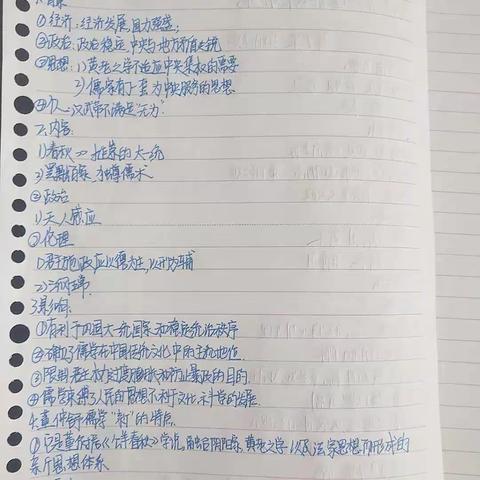 ①经济：经济发展，国力强盛；
②政治：政治稳定，中央与地方矛盾
③思想：1)黄老之学不适应中央集权的需要
2)儒家有了 为中央服务的思想.
④个人：汉武帝不满足"无为".
2.内容:
1)春秋》 推崇的大一统
2)罢黜百家，独尊儒术
②政治
1)天人感应
③伦理
1)君主施政应以德为主，以刑为辅
2)三纲五常.
3.影响:
①有利于 国大一统国家和稳定统治秩序
②确立了儒学在中国传统文化中的主流地位.
③限制君主权力过度膨胀和防止暴政的目的.
④ 束缚了人民的思想不利于文化、科学的发展.
4.董仲舒儒学"新"的特点.
①它是董仲舒《公羊春秋》学说，融合阴阳家、黄老之学以及法家思想而形成的
新 思想体系.